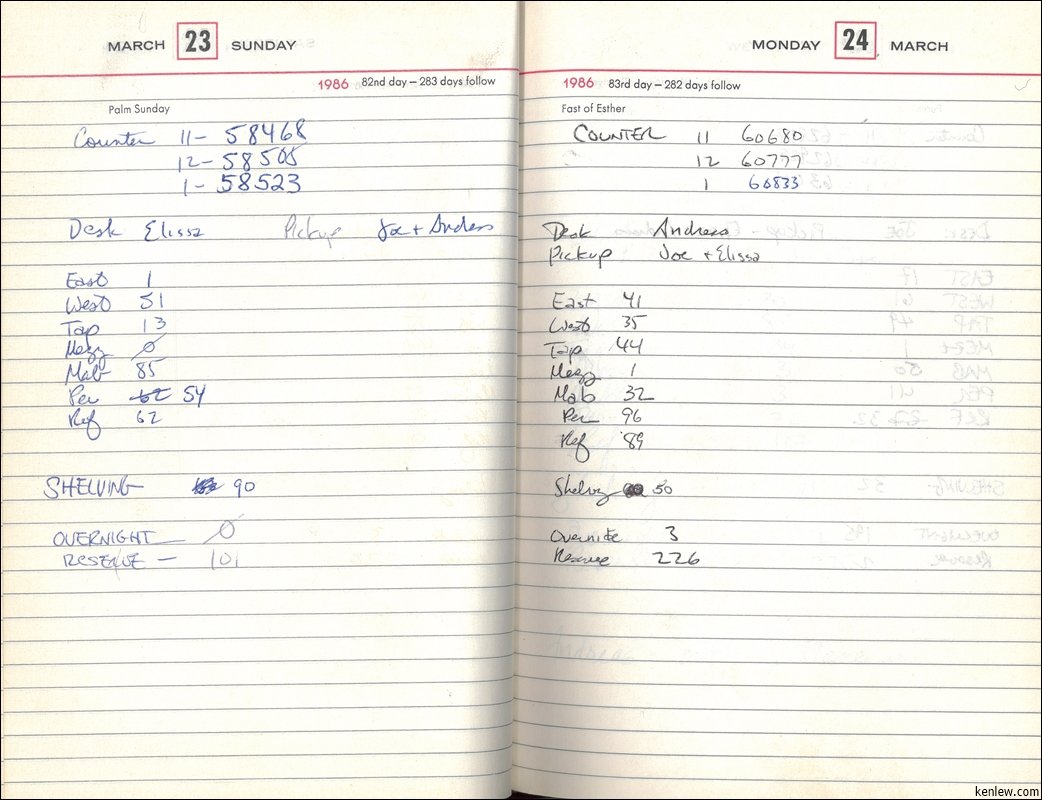 MARCH 23 SUNDAY
1986 82nd day – 283 days follow
Palm Sunday
Counter 11- 58468
12- 58505
1- 58523
Desk Elissa Pickup Joe + Andrea
East 1
West 51
Tap 13
Mezz 0
Mab 85
Per 62 54
Ref 62
SHELVING 90
OVERNIGHT 0
RESERVE - 101
MONDAY 24 MARCH
1986 83rd day – 282 days follow
Fast of Esther
COUNTER 11 60680
12 60777
1 60833
Desk Andrea
Pickup Joe + Elissa
East 41
West 35
Tap 44
Mezz 1
Mab 32
Per 96
Ref 89
Shelving 50
Overnite 3
Reserve 226
kenlew.com